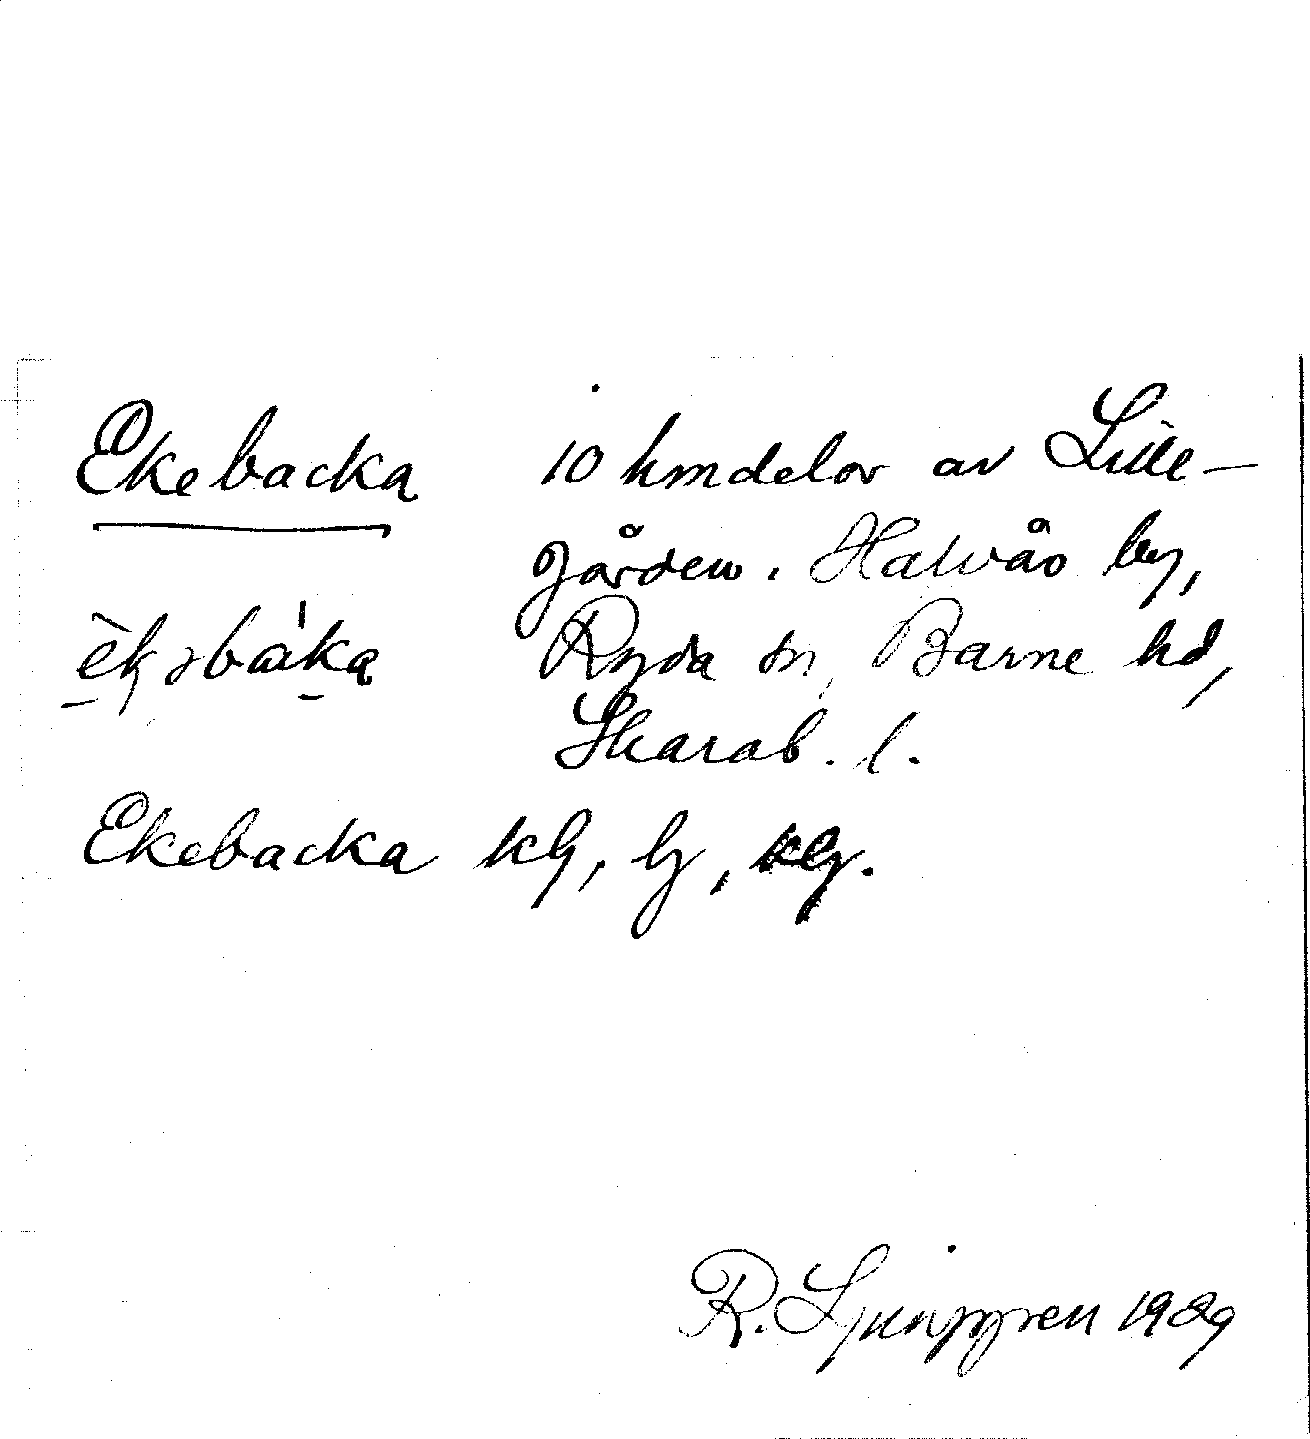 Ekebacka 10 hmdelar av Lille-
gården. Halvås by,
Ryda sn, Barne hd,
Skarab. l.
Ekebacka
R. Ljunggren 1929